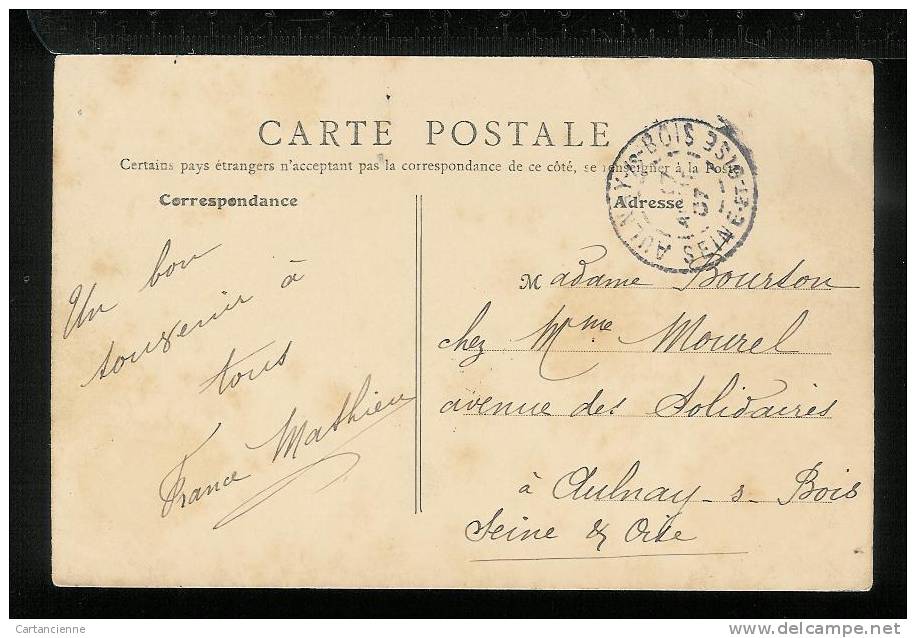 CARTE POSTALE
Certains pays étrangers n'acceptant pas la correspondance de ce côté, se renseigner à la Poste
Correspondance
Adresse
Un bon
souvenir à
tous
France Mathieu
Madame Bourson
chez Mme Mourel
avenue des Solidaires
à Aulnay-s-Bois
Seine & Oise
AULNAY-s-BOIS
SEINE-ET-OISE
07
Cartancienne
delcampe.net